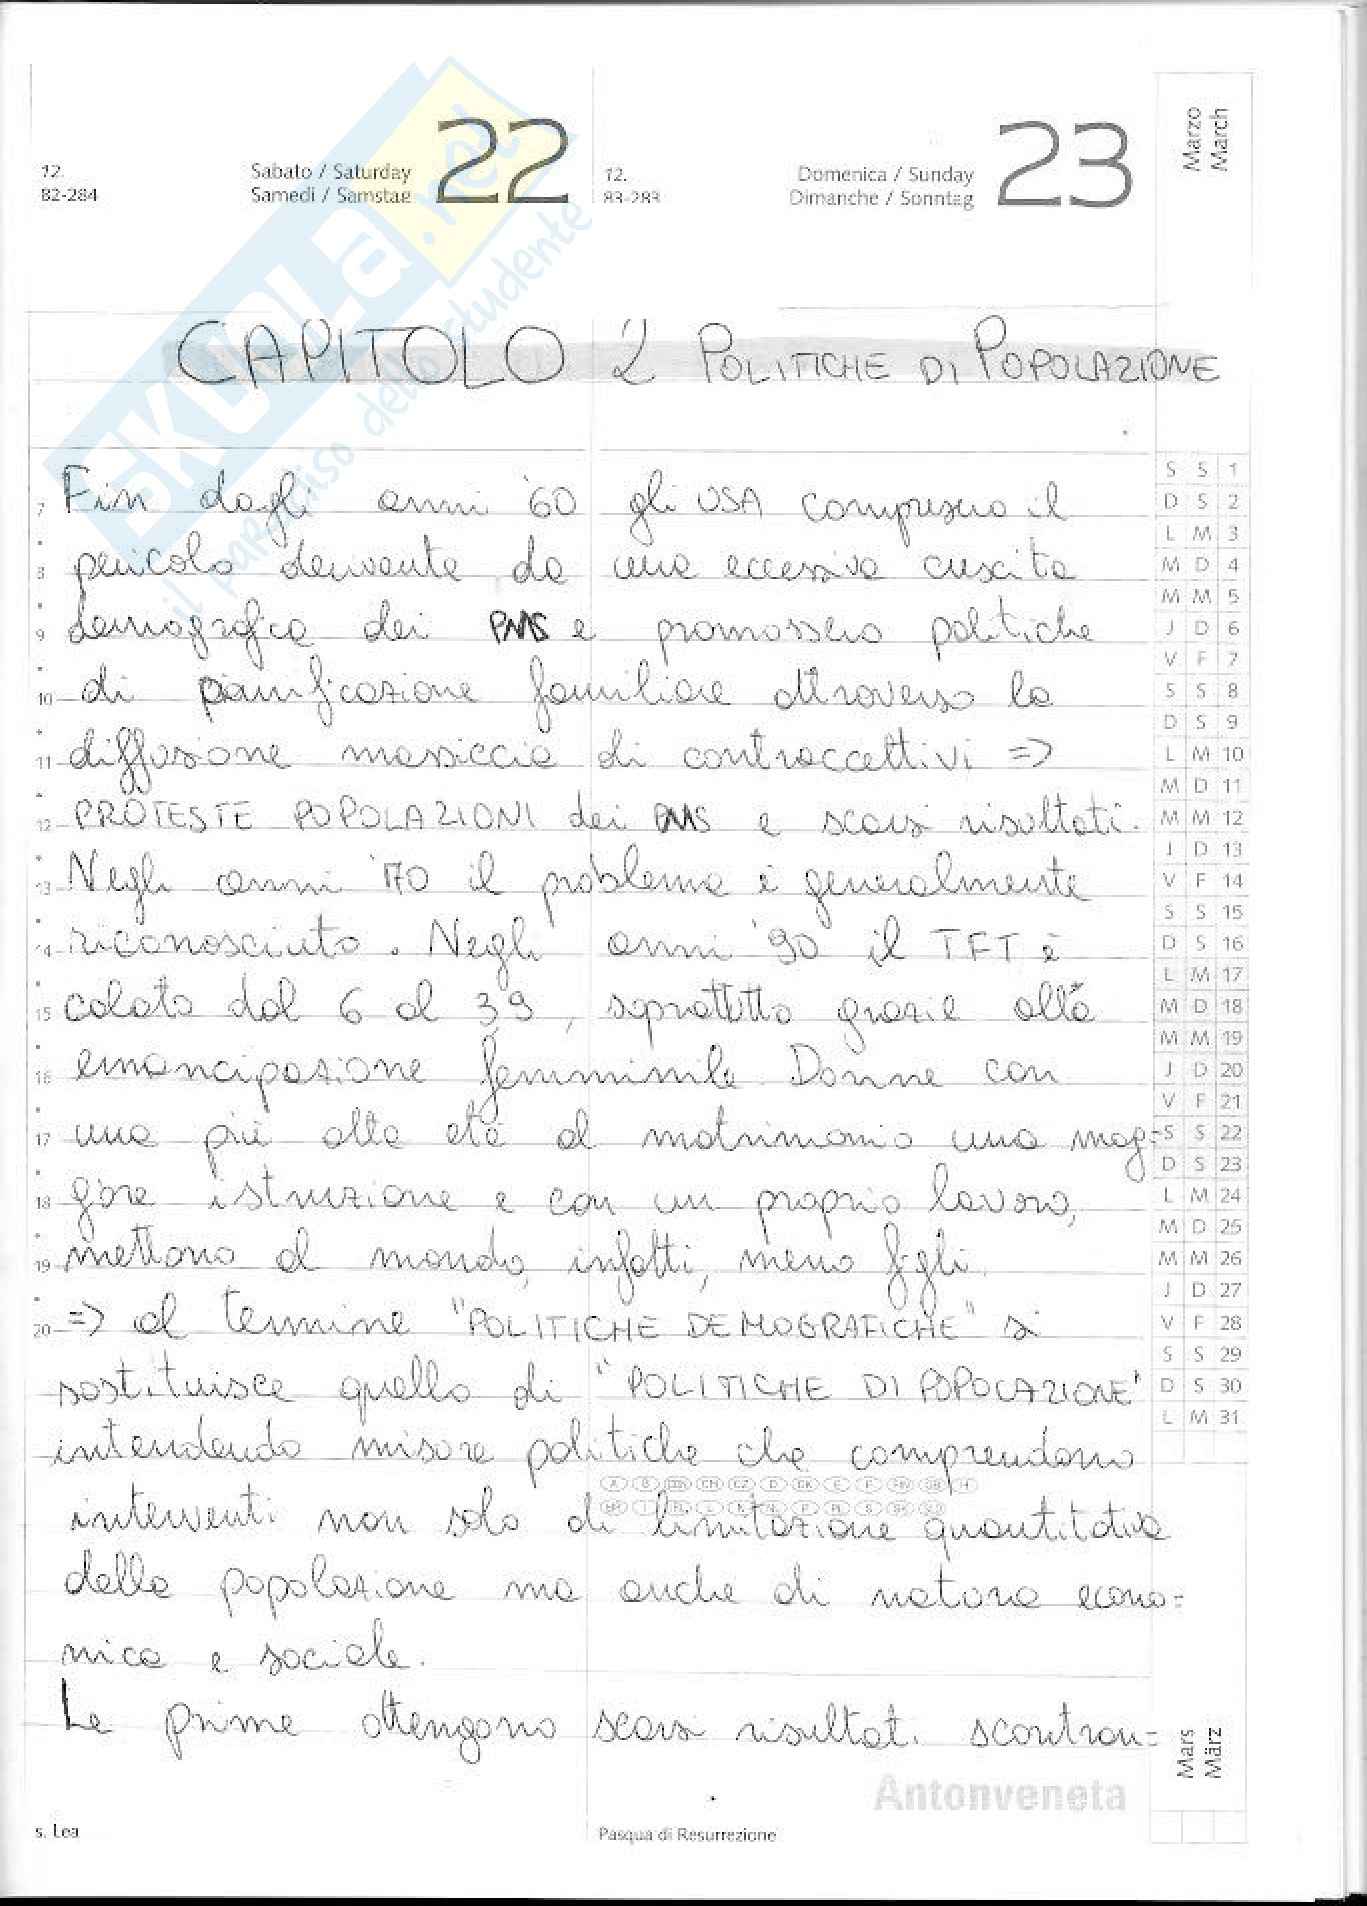 12.
82-284
Sabato / Saturday
Samedi / Samstag
22
12.
83-283
Domenica / Sunday
Dimanche / Sonntag
23
Marzo
March
SKUOLA.net
il paradiso dello studente
CAPITOLO 2 POLITICHE DI POPOLAZIONE
Fin dagli anni '60 gli USA compresero il
pericolo derivante da una eccessiva crescita
demografica dei PMS e promossero politiche
di pianificazione familiare attraverso la
diffusione massiccia di contraccettivi =>
PROTESTE POPOLAZIONI dei PMS e scarsi risultati.
Negli anni '70 il problema è generalmente
riconosciuto. Negli anni '90 il TFT è
calato dal 6 al 39, soprattutto grazie alla
emancipazione femminile. Donne con
una più alta età al matrimonio una mag=
giore istruzione e con un proprio lavoro,
mettono al mondo, infatti, meno figli.
=> al termine "POLITICHE DEMOGRAFICHE" si
sostituisce quello di "POLITICHE DI POPOLAZIONE"
intendendo misure politiche che comprendono
interventi non solo di limitazione quantitativa
della popolazione ma anche di natura econo=
mica e sociale.
Le prime ottengono scarsi risultati scontran=
7
8
9
10
11
12
13
14
15
16
17
18
19
20
S S 1
D S 2
L M 3
M D 4
M M 5
J D 6
V F 7
S S 8
D S 9
L M 10
M D 11
M M 12
J D 13
V F 14
S S 15
D S 16
L M 17
M D 18
M M 19
J D 20
V F 21
S S 22
D S 23
L M 24
M D 25
M M 26
J D 27
V F 28
S S 29
D S 30
L M 31
Mars
März
Antonveneta
s. Lea
Pasqua di Resurrezione